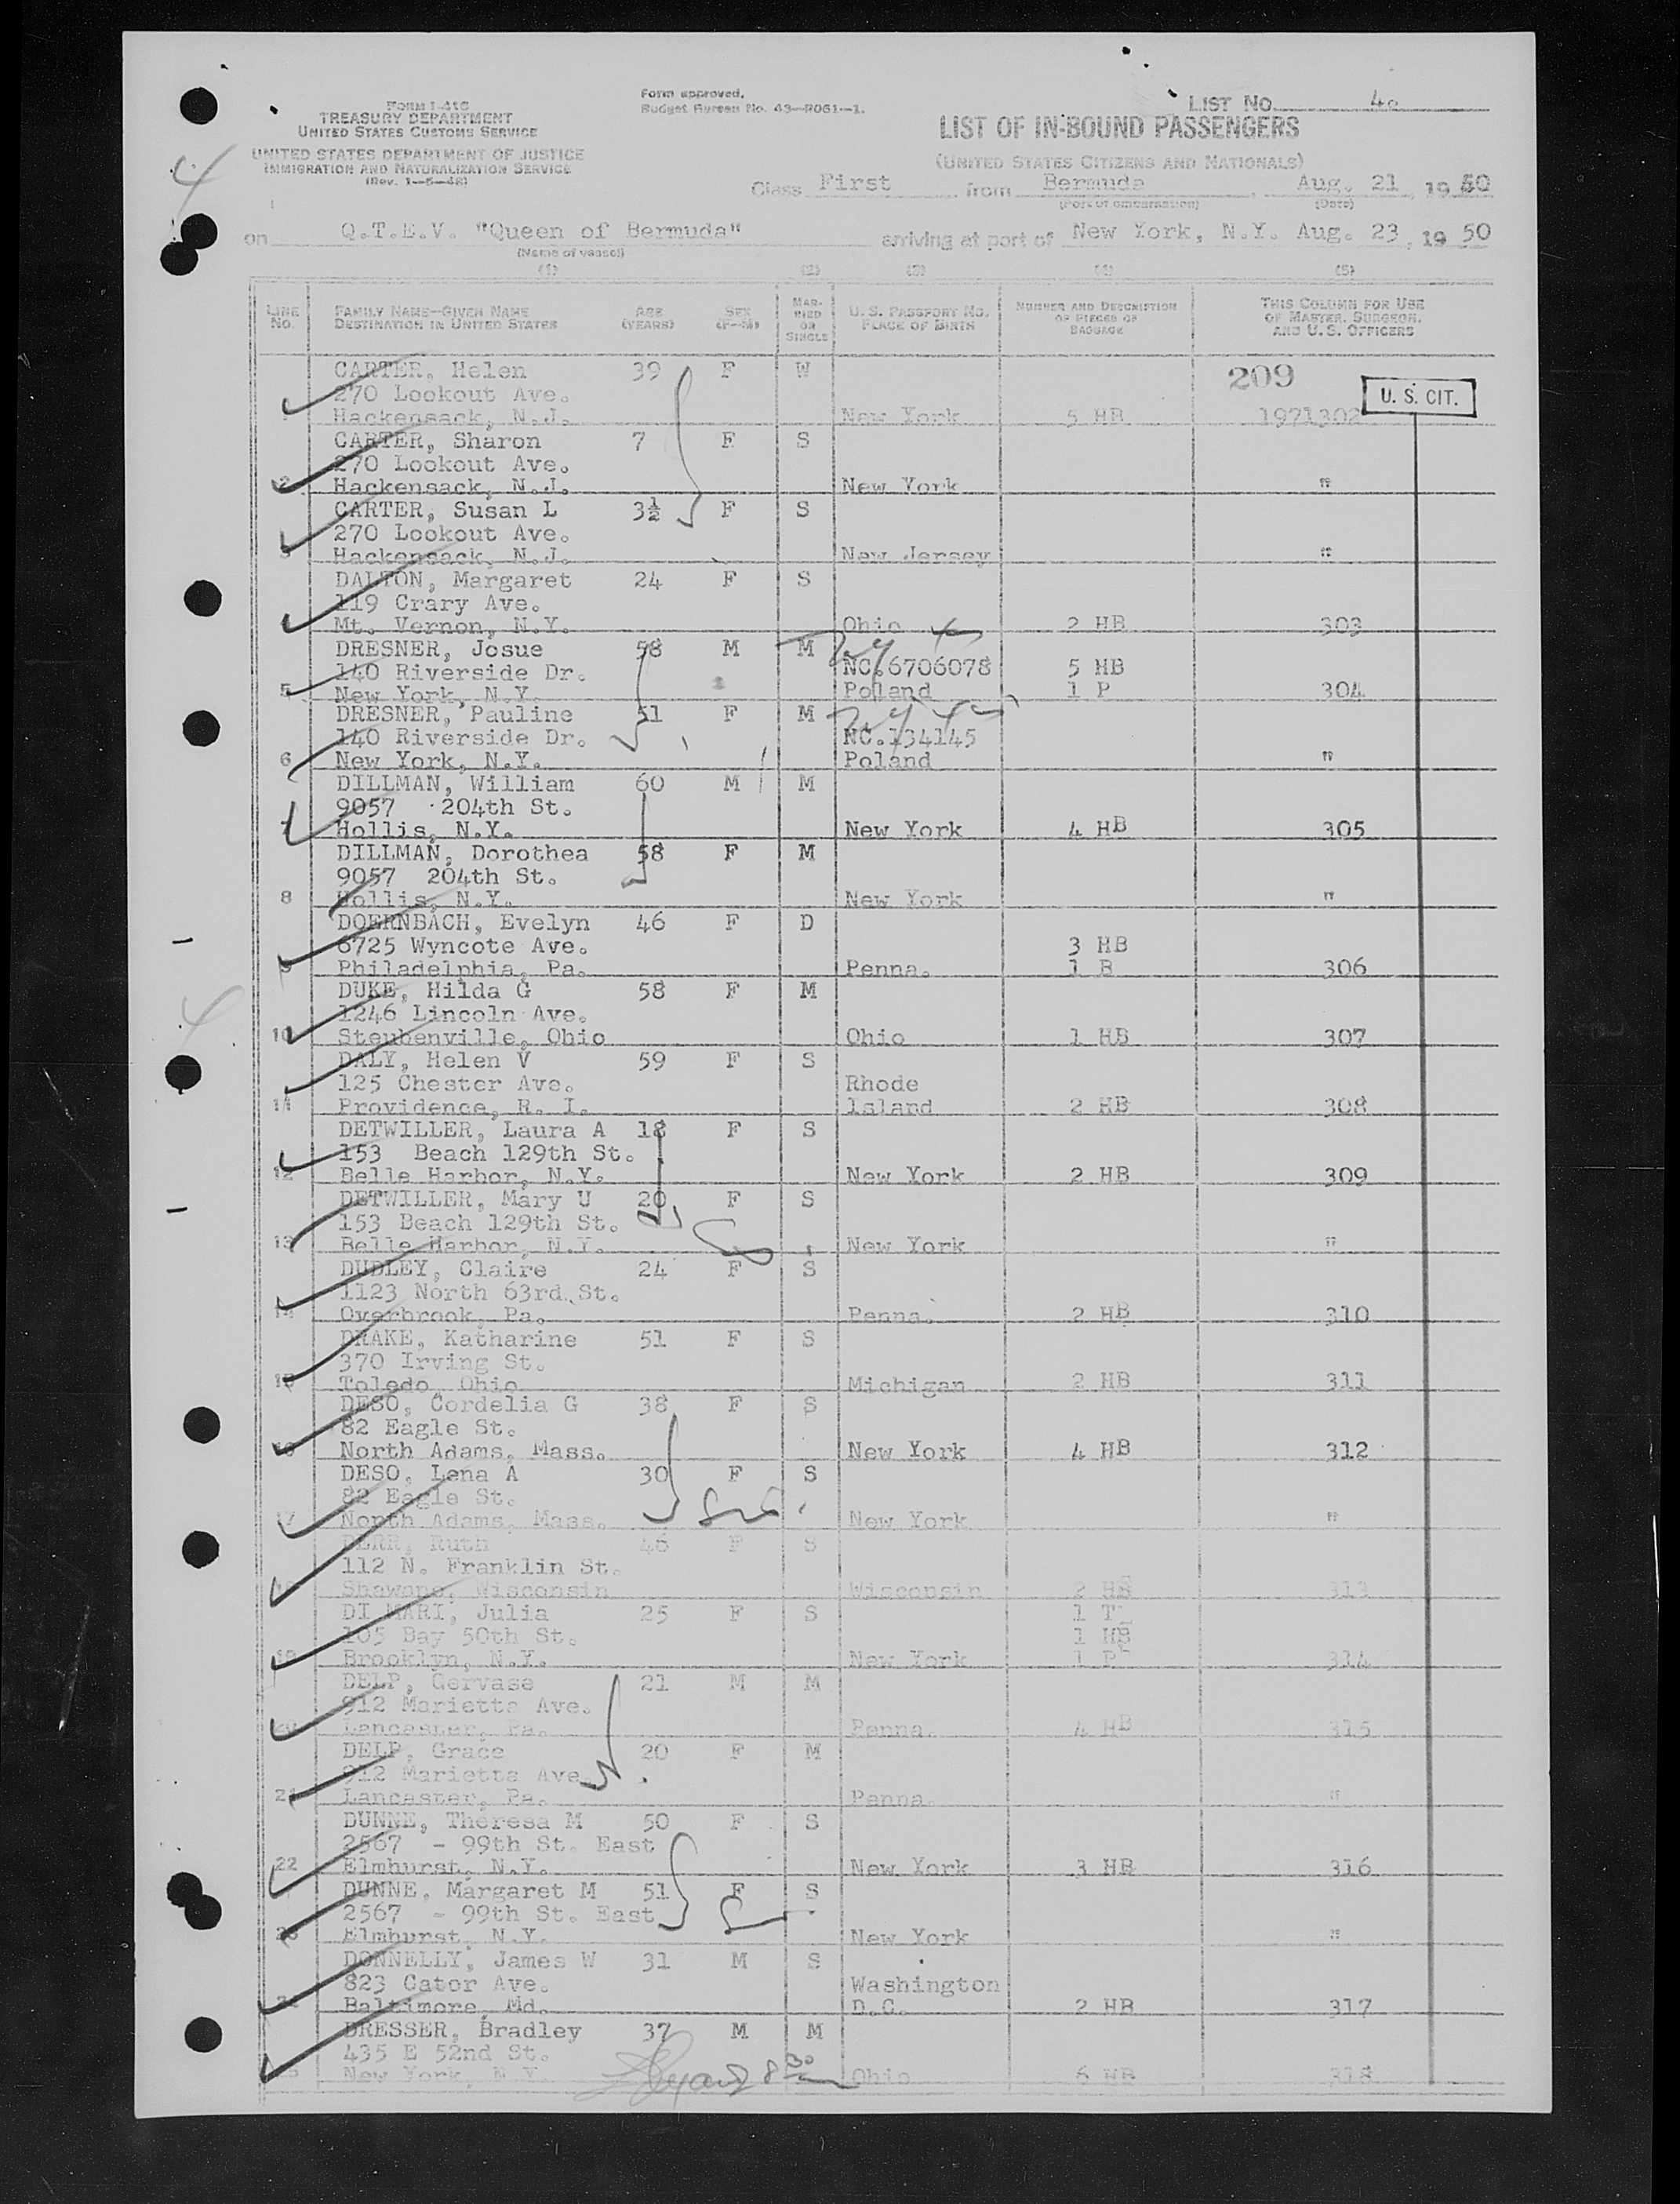 FORM I-416
TREASURY DEPARTMENT
UNITED STATES CUSTOMS SERVICE
UNITED STATES DEPARTMENT OF JUSTICE
IMMIGRATION AND NATURALIZATION SERVICE
(Rev. 1-5-48)
Form approved.
Budget Bureau No. 43-R061-1.
LIST No. 4
LIST OF IN-BOUND PASSENGERS
(UNITED STATES CITIZENS AND NATIONALS)
Class First from Bermuda, Aug. 21, 1950
(Port of embarkation) (Date)
on Q.T.E.V. "Queen of Bermuda" arriving at port of New York, N.Y. Aug. 23, 1950
(Name of vessel)
(1) (2) (3) (4) (5)
LINE No. FAMILY NAME-GIVEN NAME DESTINATION IN UNITED STATES AGE (YEARS) SEX (F-M) MARRIED OR SINGLE U. S. PASSPORT NO. PLACE OF BIRTH NUMBER AND DESCRIPTION OF PIECES OF BAGGAGE THIS COLUMN FOR USE OF MASTER, SURGEON, AND U. S. OFFICERS
CARTER, Helen 39 F W 209
270 Lookout Ave. U. S. CIT.
Hackensack, N.J. New York 5 HB 1971302
CARTER, Sharon 7 F S
270 Lookout Ave.
2 Hackensack, N.J. New York "
CARTER, Susan L 3½ F S
270 Lookout Ave.
3 Hackensack, N.J. New Jersey "
DALTON, Margaret 24 F S
119 Crary Ave.
Mt. Vernon, N.Y. Ohio 2 HB 303
DRESNER, Josue 58 M M
140 Riverside Dr. NC.6706078 5 HB
5 New York, N.Y. Poland 1 P 304
DRESNER, Pauline 51 F M
140 Riverside Dr. NC.134145
6 New York, N.Y. Poland "
DILLMAN, William 60 M M
9057 204th St.
7 Hollis, N.Y. New York 4 HB 305
DILLMAN, Dorothea 58 F M
9057 204th St.
8 Hollis, N.Y. New York "
DOERNBACH, Evelyn 46 F D
6725 Wyncote Ave. 3 HB
9 Philadelphia, Pa. Penna. 1 B 306
DUKE, Hilda G 58 F M
1246 Lincoln Ave.
10 Steubenville, Ohio Ohio 1 HB 307
DALY, Helen V 59 F S
125 Chester Ave. Rhode
11 Providence, R. I. Island 2 HB 308
DETWILLER, Laura A 18 F S
153 Beach 129th St.
12 Belle Harbor, N.Y. New York 2 HB 309
DETWILLER, Mary U 20 F S
153 Beach 129th St.
13 Belle Harbor, N.Y. New York "
DUDLEY, Claire 24 F S
1123 North 63rd St.
14 Overbrook, Pa. Penna. 2 HB 310
DRAKE, Katharine 51 F S
370 Irving St.
15 Toledo, Ohio Michigan 2 HB 311
DESO, Cordelia G 38 F S
82 Eagle St.
16 North Adams, Mass. New York 4 HB 312
DESO, Lena A 30 F S
82 Eagle St.
17 North Adams, Mass. New York "
DERR, Ruth 46 F S
112 N. Franklin St.
18 Shawano, Wisconsin Wisconsin 2 HB 313
DI MARI, Julia 25 F S 1 T
105 Bay 50th St. 1 HB
19 Brooklyn, N.Y. New York 1 P 314
DELP, Gervase 21 M M
912 Marietta Ave.
20 Lancaster, Pa. Penna. 4 HB 315
DELP, Grace 20 F M
912 Marietta Ave.
21 Lancaster, Pa. Penna. "
DUNNE, Theresa M 50 F S
2567 - 99th St. East
22 Elmhurst, N.Y. New York 3 HB 316
DUNNE, Margaret M 51 F S
2567 - 99th St. East
23 Elmhurst, N.Y. New York "
DONNELLY, James W 31 M S
823 Gator Ave. Washington
24 Baltimore, Md. D.C. 2 HB 317
DRESSER, Bradley 37 M M
435 E 52nd St.
25 New York, N.Y. Ohio 6 HB 318